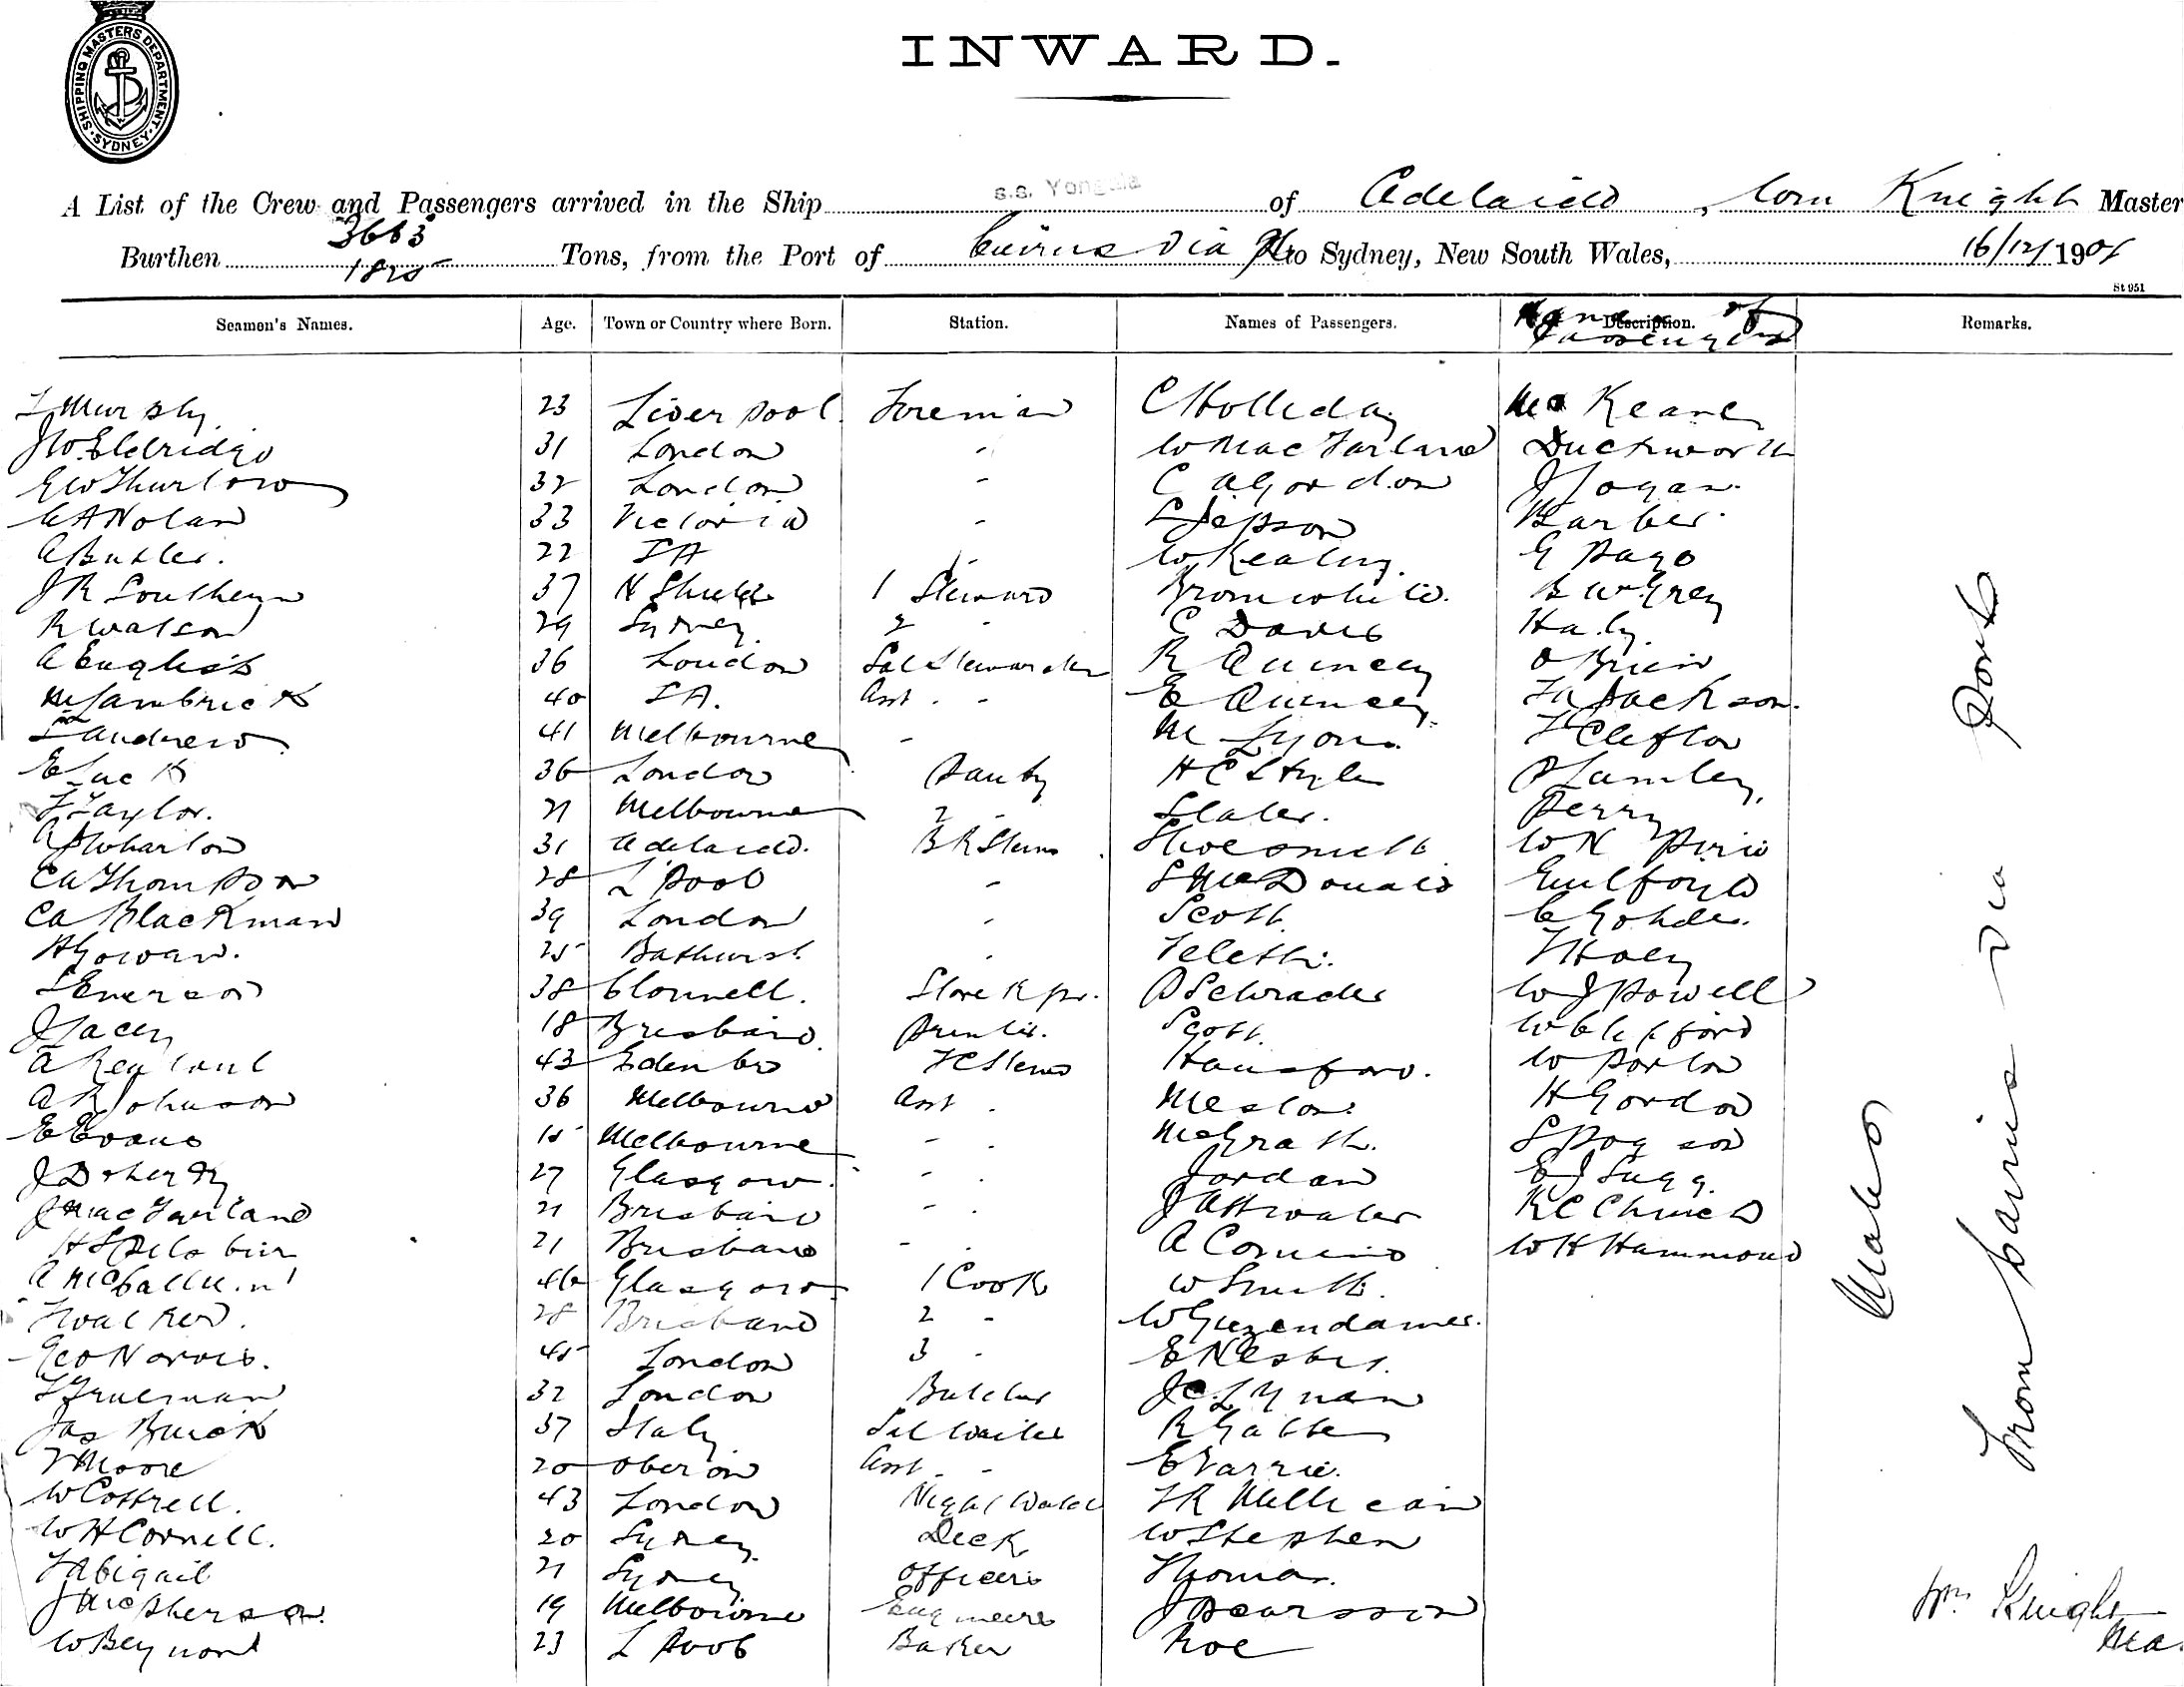 SHIPPING MASTERS DEPARTMENT. SYDNEY
INWARD.
A List of the Crew and Passengers arrived in the Ship s.s. Yongala of Adelaide, Wm Knight Master
Burthen 3663 1825 Tons, from the Port of Cairns via Pts to Sydney, New South Wales, 16/12/ 190
St 951
Seamen's Names. Age. Town or Country where Born. Station. Names of Passengers. Description. Names of Passengers Remarks.
T Murphy 23 Liverpool Foreman C Holliday Keane
J W Eldridge 31 London " W MacFarland Duckworth
E W Thurlow 32 London " C A Gordon J Logan
C A Nolan 33 Victoria " L Jepson Barber
A Butler. 22 S A " W Kealey. G Page
J R Southern 37 N Shields 1 Steward Bromwhite. B W Grey
R Watson 29 Sydney 2 " C Davis Haly.
A English 36 London Sal Stewardess R Quincey O Brien
M Lambrick 40 S A. Asst " " E Quincey F A Jackson.
Andrew 41 Melbourne " M Lyons T Clifton
E Luck 36 London Pantry H C Style P Lumley.
F Taylor. 21 Melbourne 2 " Slater. Perry
A J Wharton 31 Adelaide. B R Stewd Shoesmith W N Pirie
C A Thompson 28 L'pool " S McDonald Guilfoyle
C A Blackman 39 London " Scott. C Gohdes.
H Gowan. 25 Bathurst " T Hoey
S Emerson 38 Store Kpr. P Schrader W J Powell
J Lacey 18 Brisbane Printer. Scott. W Clifford
A 43 Edenbro F C Stewd Hansford. W Porton
A R Johnson 36 Melbourne Asst " Meston H Gordon
E Evans 18 Melbourne " " McGrath. S Pogson
J Doherty 27 Glasgow. " " Jordan E J Sugg.
J MacFarland 21 Brisbane " " J Attwater R C Church
H S 21 Brisbane " " A W H Hammond
A McCallum 46 Glasgow 1 Cook W Smith.
Walker. 28 Brisbane 2 "
Geo Norris. 45 London 3 " E Nesbit.
T Trueman 32 London Butcher J C Lynan
Jas Buick 37 Italy Sal Waiter R Gatte
T Moore 20 Oberon Asst " " E Varrie.
W Cottrell. 43 London Night Watch F R Millican
W H Cornell. 20 Sydney Deck W Stephen
F Abigail 21 Sydney Officers Thomas.
J McPherson. 19 Melbourne Engineers J Pearsson
W Beynon 23 L'pool Baker Roe
Males
From Cairns via Ports
Wm Knight